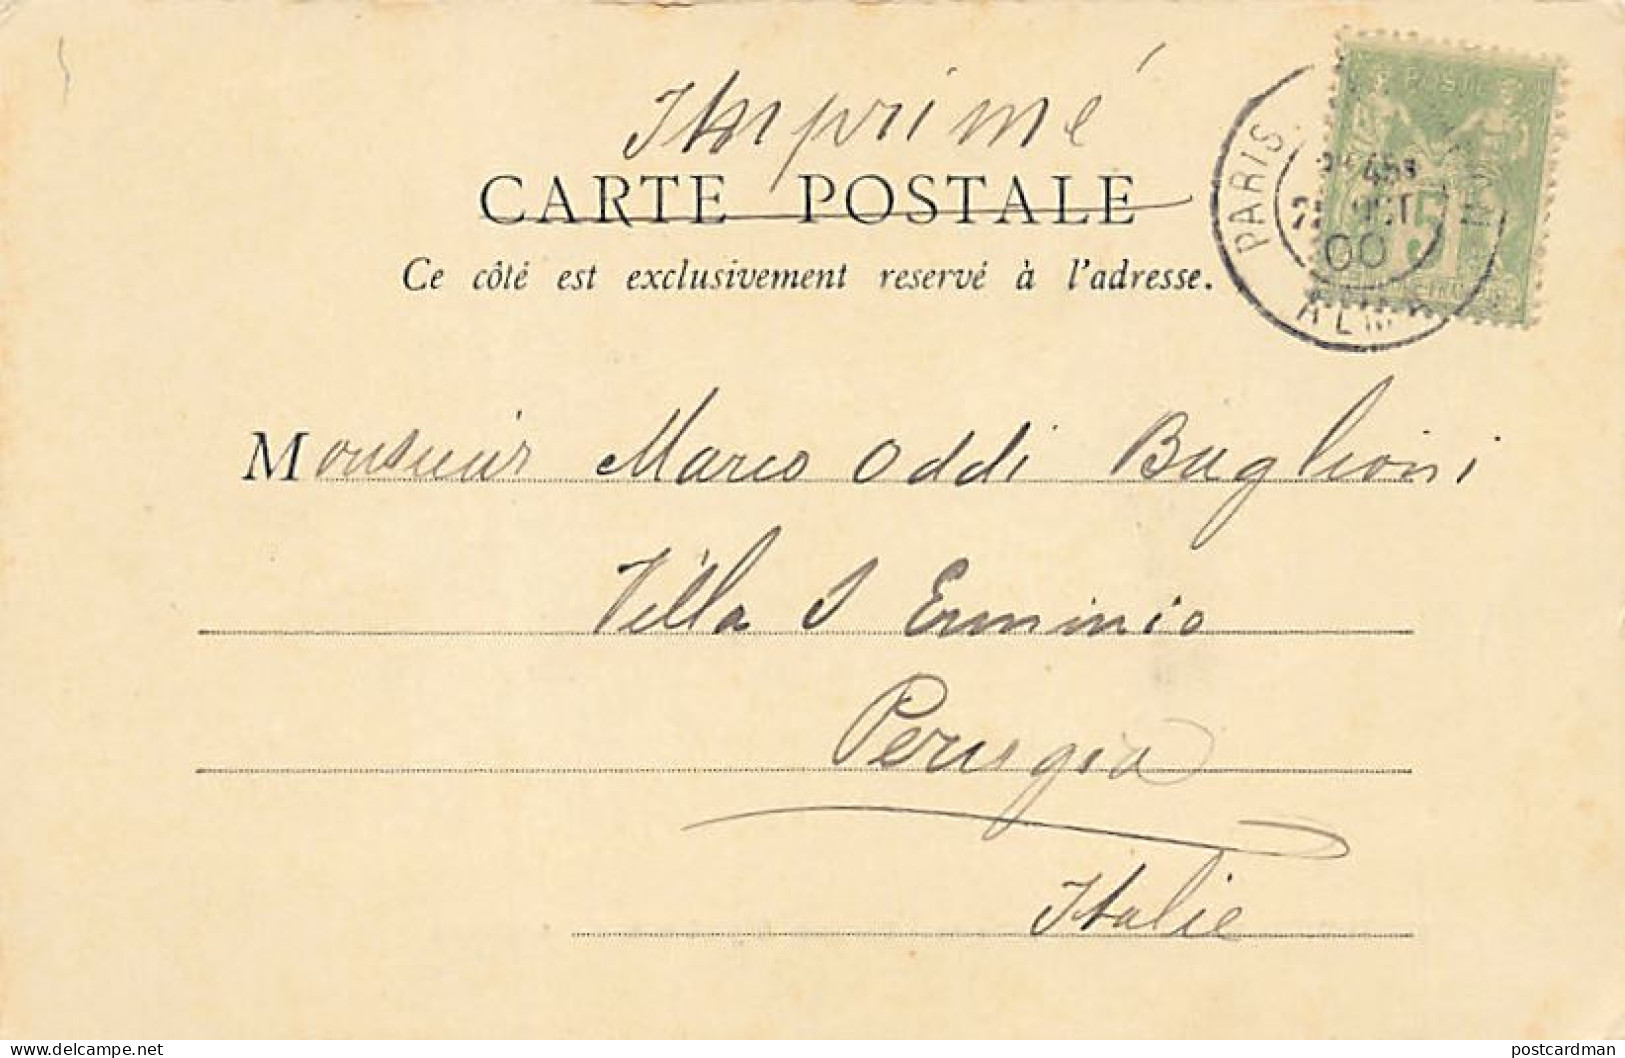 Imprimé
CARTE POSTALE
Ce côté est exclusivement reservé à l'adresse.
PARIS
OCT
00
5
Monsieur Marco Oddi Baglioni
Villa S Erminio
Perugia
Italie
www.delcampe.net
postcardman